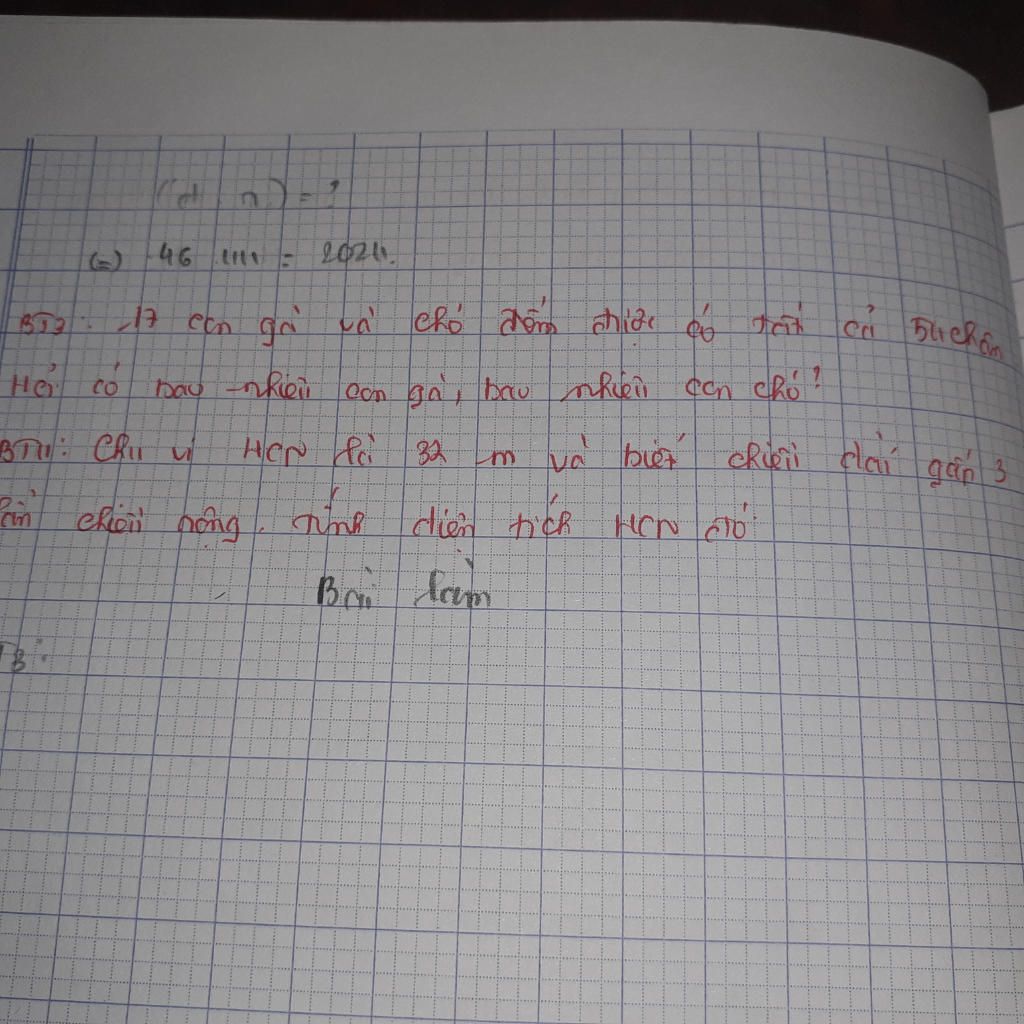 ( ) = ?
(=) 46 = 2024.
BT3: 17 con gà và chó đếm được có tất cả 54 chân
Hỏi có bao nhiêu con gà, bao nhiêu con chó?
BT4: Chu vi HCN là 32 m và biết chiều dài gấp 3
lần chiều rộng. Tính diện tích HCN đó.
Bài làm
T3: